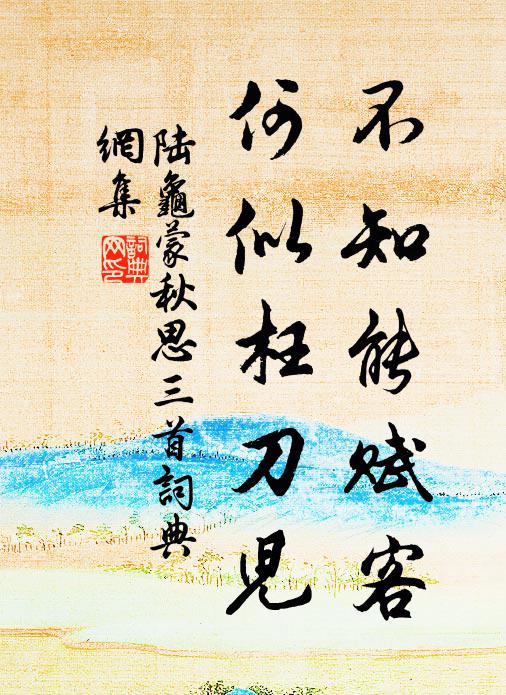 不知能賦客
何似枉刀兒
陆龜蒙秋思三首詞典
網集
詞典
网印